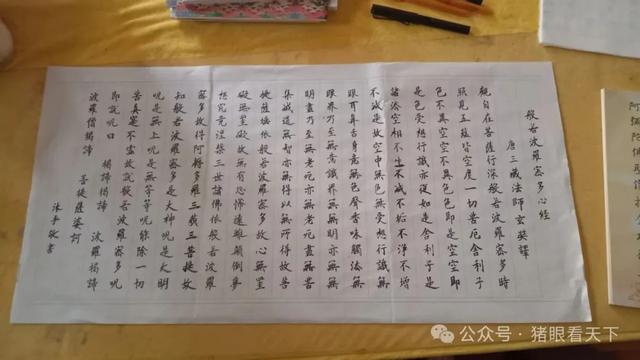 般若波羅密多心經
唐三藏法師玄奘譯
觀自在菩薩行深般若波羅密多時
照見五蘊皆空度一切苦厄舍利子
色不異空空不異色色即是空空即
是色受想行識亦復如是舍利子是
諸法空相不生不滅不垢不淨不增
不減是故空中無色無受想行識無
眼耳鼻舌身意無色聲香味觸法無
眼界乃至無意識界無無明亦無無
明盡乃至無老死亦無老死盡無苦
集滅道無智亦無得以無所得故菩
提薩埵依般若波羅密多故心無罣
礙無罣礙故無有恐怖遠離顛倒夢
想究竟涅槃三世諸佛依般若波羅
密多故得阿耨多羅三藐三菩提故
知般若波羅密多是大神呪是大明
呪是無上呪是無等等呪能除一切
苦真實不虛故說般若波羅密多呪
即說呪曰 揭諦揭諦 波羅揭諦
波羅僧揭諦 菩提薩婆訶
沐手敬書
公众号·猪眼看天下